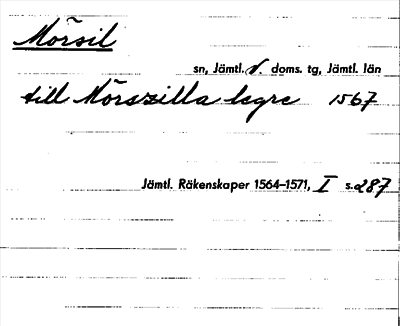 Mörsil
sn, Jämtl. v. doms. tg, Jämtl. län
till Mörszilla legre 1567
Jämtl. Räkenskaper 1564–1571, I s. 287